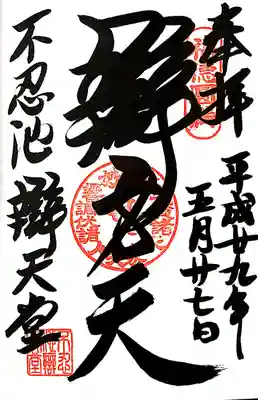 奉拝
平成廿九年
五月廿七日
辯才天
不忍池辯天堂